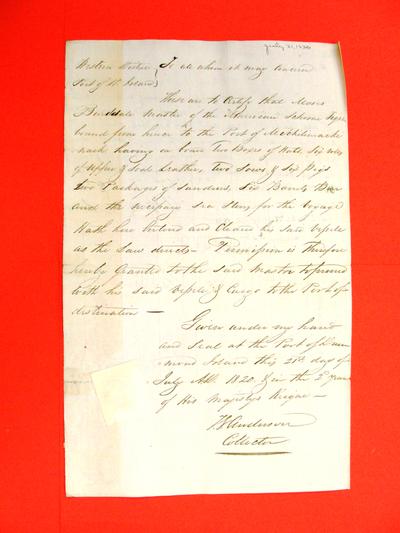 July 21, 1820
Western District } To all whom it may concern
Port of
These are to Certify that Moses
Master of the American Schooner
bound from hence to the Port of Michilimack
inack having on board Two Boxes of Hats, Six rolls
of Upper & Soal Leather, Two Sows & Six Pigs
two Packages of Sundries, Six Barrels Beer
and the necessary sea Stores for the Voyage
Hath here Entered and Cleared his said Vessele
as the Law directs — Permission is therefore
hereby Granted to the said Master to proceed
with his said Vessele & Cargo to the Port of
destination —
Given under my hand
and Seal at the Port of Drum
mond Island this 21st day of
July AD. 1820 & in the year
of His Majestys Reign —
Anderson
Collector